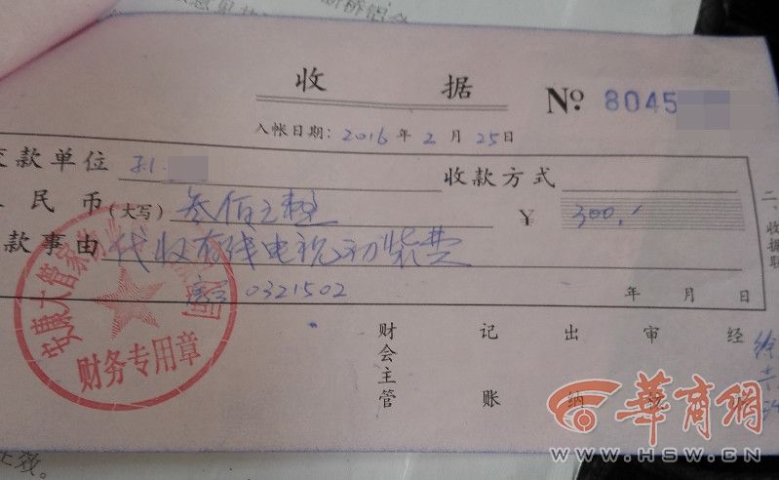 收 据
№ 8045
入帐日期：2016 年 2 月 25 日
交款单位 孙
收款方式
民币(大写) 叁佰元整 ￥ 300.
款事由 代收有线电视初装费
0321502
年 月 日
财会主管 记账 出纳 审 经
二、收据联
安康大
财务专用章
华商网
WWW.HSW.CN